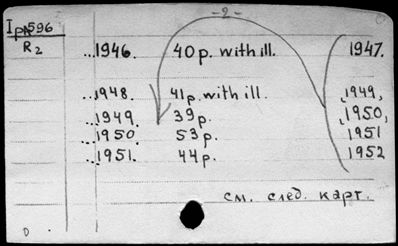 -2-
IpA596
R2
...1946. 40 p. with ill. 1947.
...1948. 41 p. with ill. 1949,
...1949. 39 p. 1950,
...1950. 53 p. 1951
...1951. 44 p. 1952
см. след. карт.